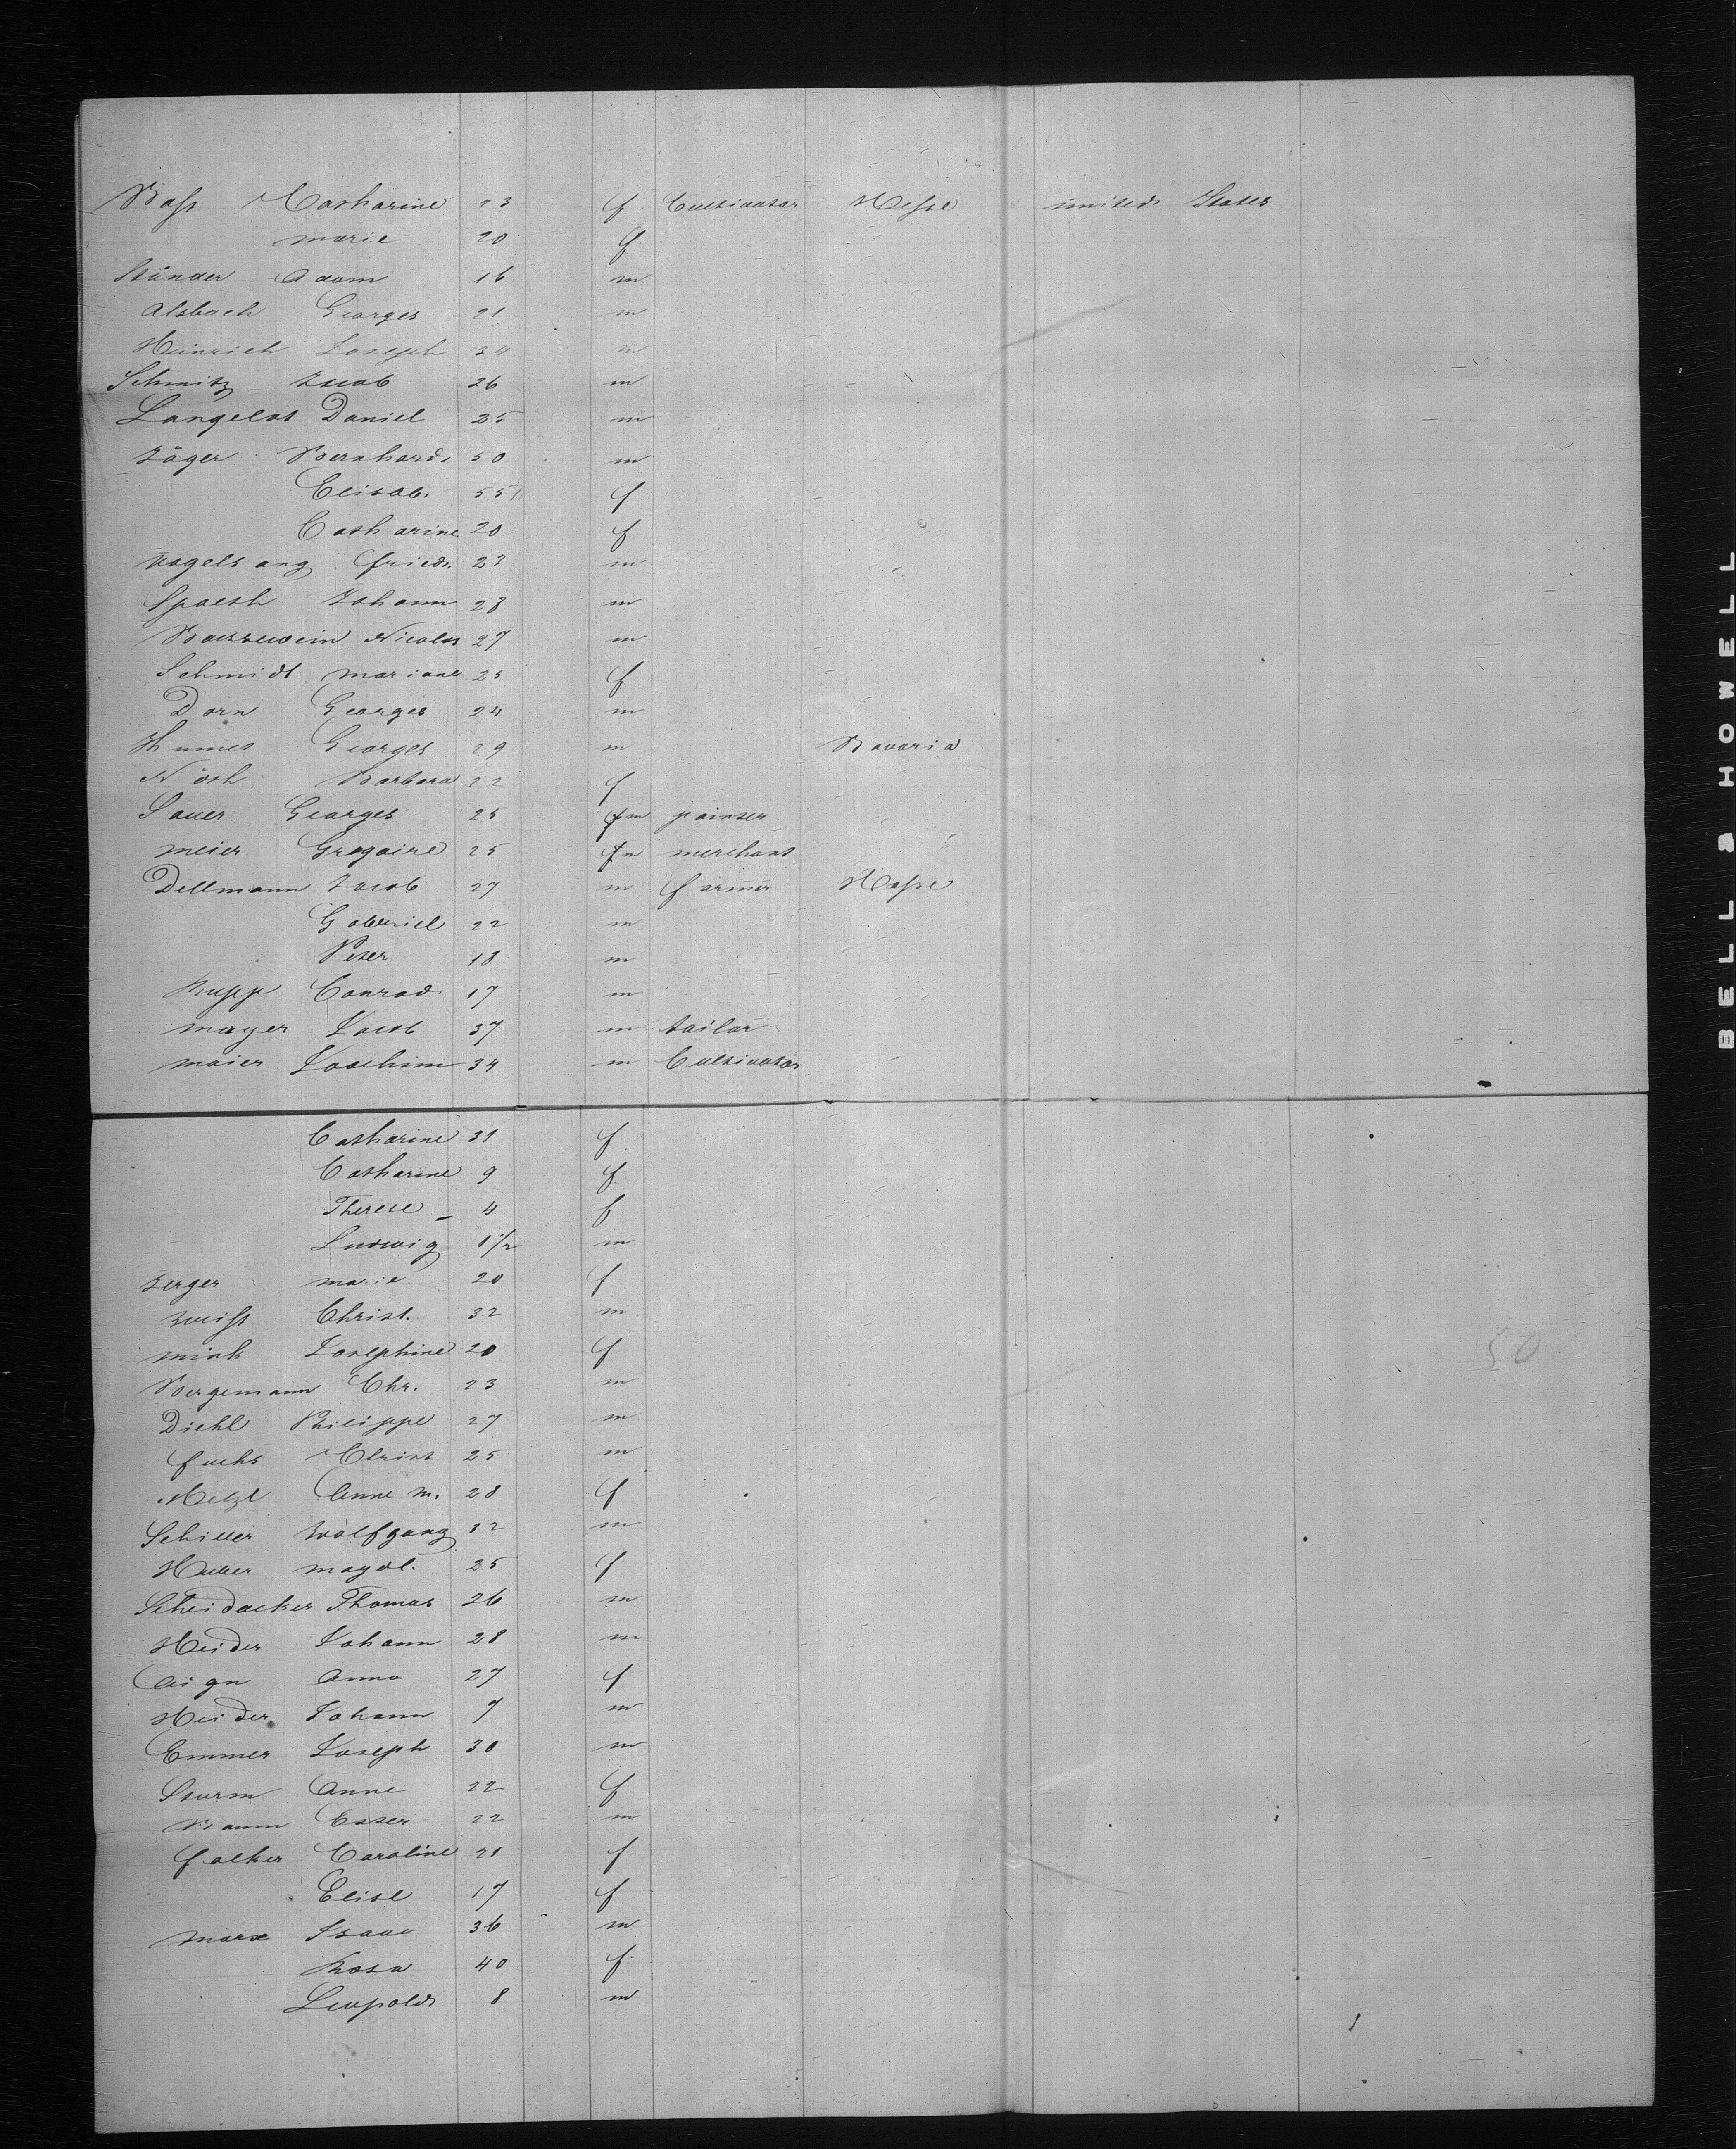 Bass Catharine 23 f Cultivator Hesse united States
marie 20 f
Ständer Adam 16 m
Alsbach Georges 21 m
Heinrich Joseph 34 m
Schmitz Jacob 26 m
Langelot Daniel 25 m
Jäger Bernhard 50 m
Elisab. 55 f
Catharine 20 f
Vogelsang fried. 23 m
Spaeth Johann 28 m
Nicolas 27 m
Schmidt mariane 25 f
Dorn Georges 24 m
Georges 29 m Bavaria
Nöth Barbara 22 f
Sauer Georges 25 m painter
meier Gregoire 25 m merchant
Dellmann Jacob 27 m farmer Hesse
Gabriel 22 m
Peter 18 m
Rupp Conrad 17 m
mayer Jacob 37 m tailor
maier Joachim 34 m Cultivator
Catharine 31 f
Catharine 9 f
Therese 4 f
Ludwig 1 1/2 m
Zerger marie 20 f
Weist Christ. 32 m
mink Josephine 20 f
Bergemann Chr. 23 m
Diehl Philippe 27 m
fuchs Christ 25 m
Metzl Anne m. 28 f
Schiller Wolfgang 32 m
Huber magdl. 25 f
Scheidacker Thomas 26 m
Heider Johann 28 m
Aign Anna 27 f
Heider Johann 7 m
Emmer Joseph 30 m
Sturm Anne 22 f
Baum 22 m
falker Caroline 21 f
Elise 17 f
marx Isaac 36 m
Rosa 40 f
Leopold 8 m
50
BELL & HOWELL